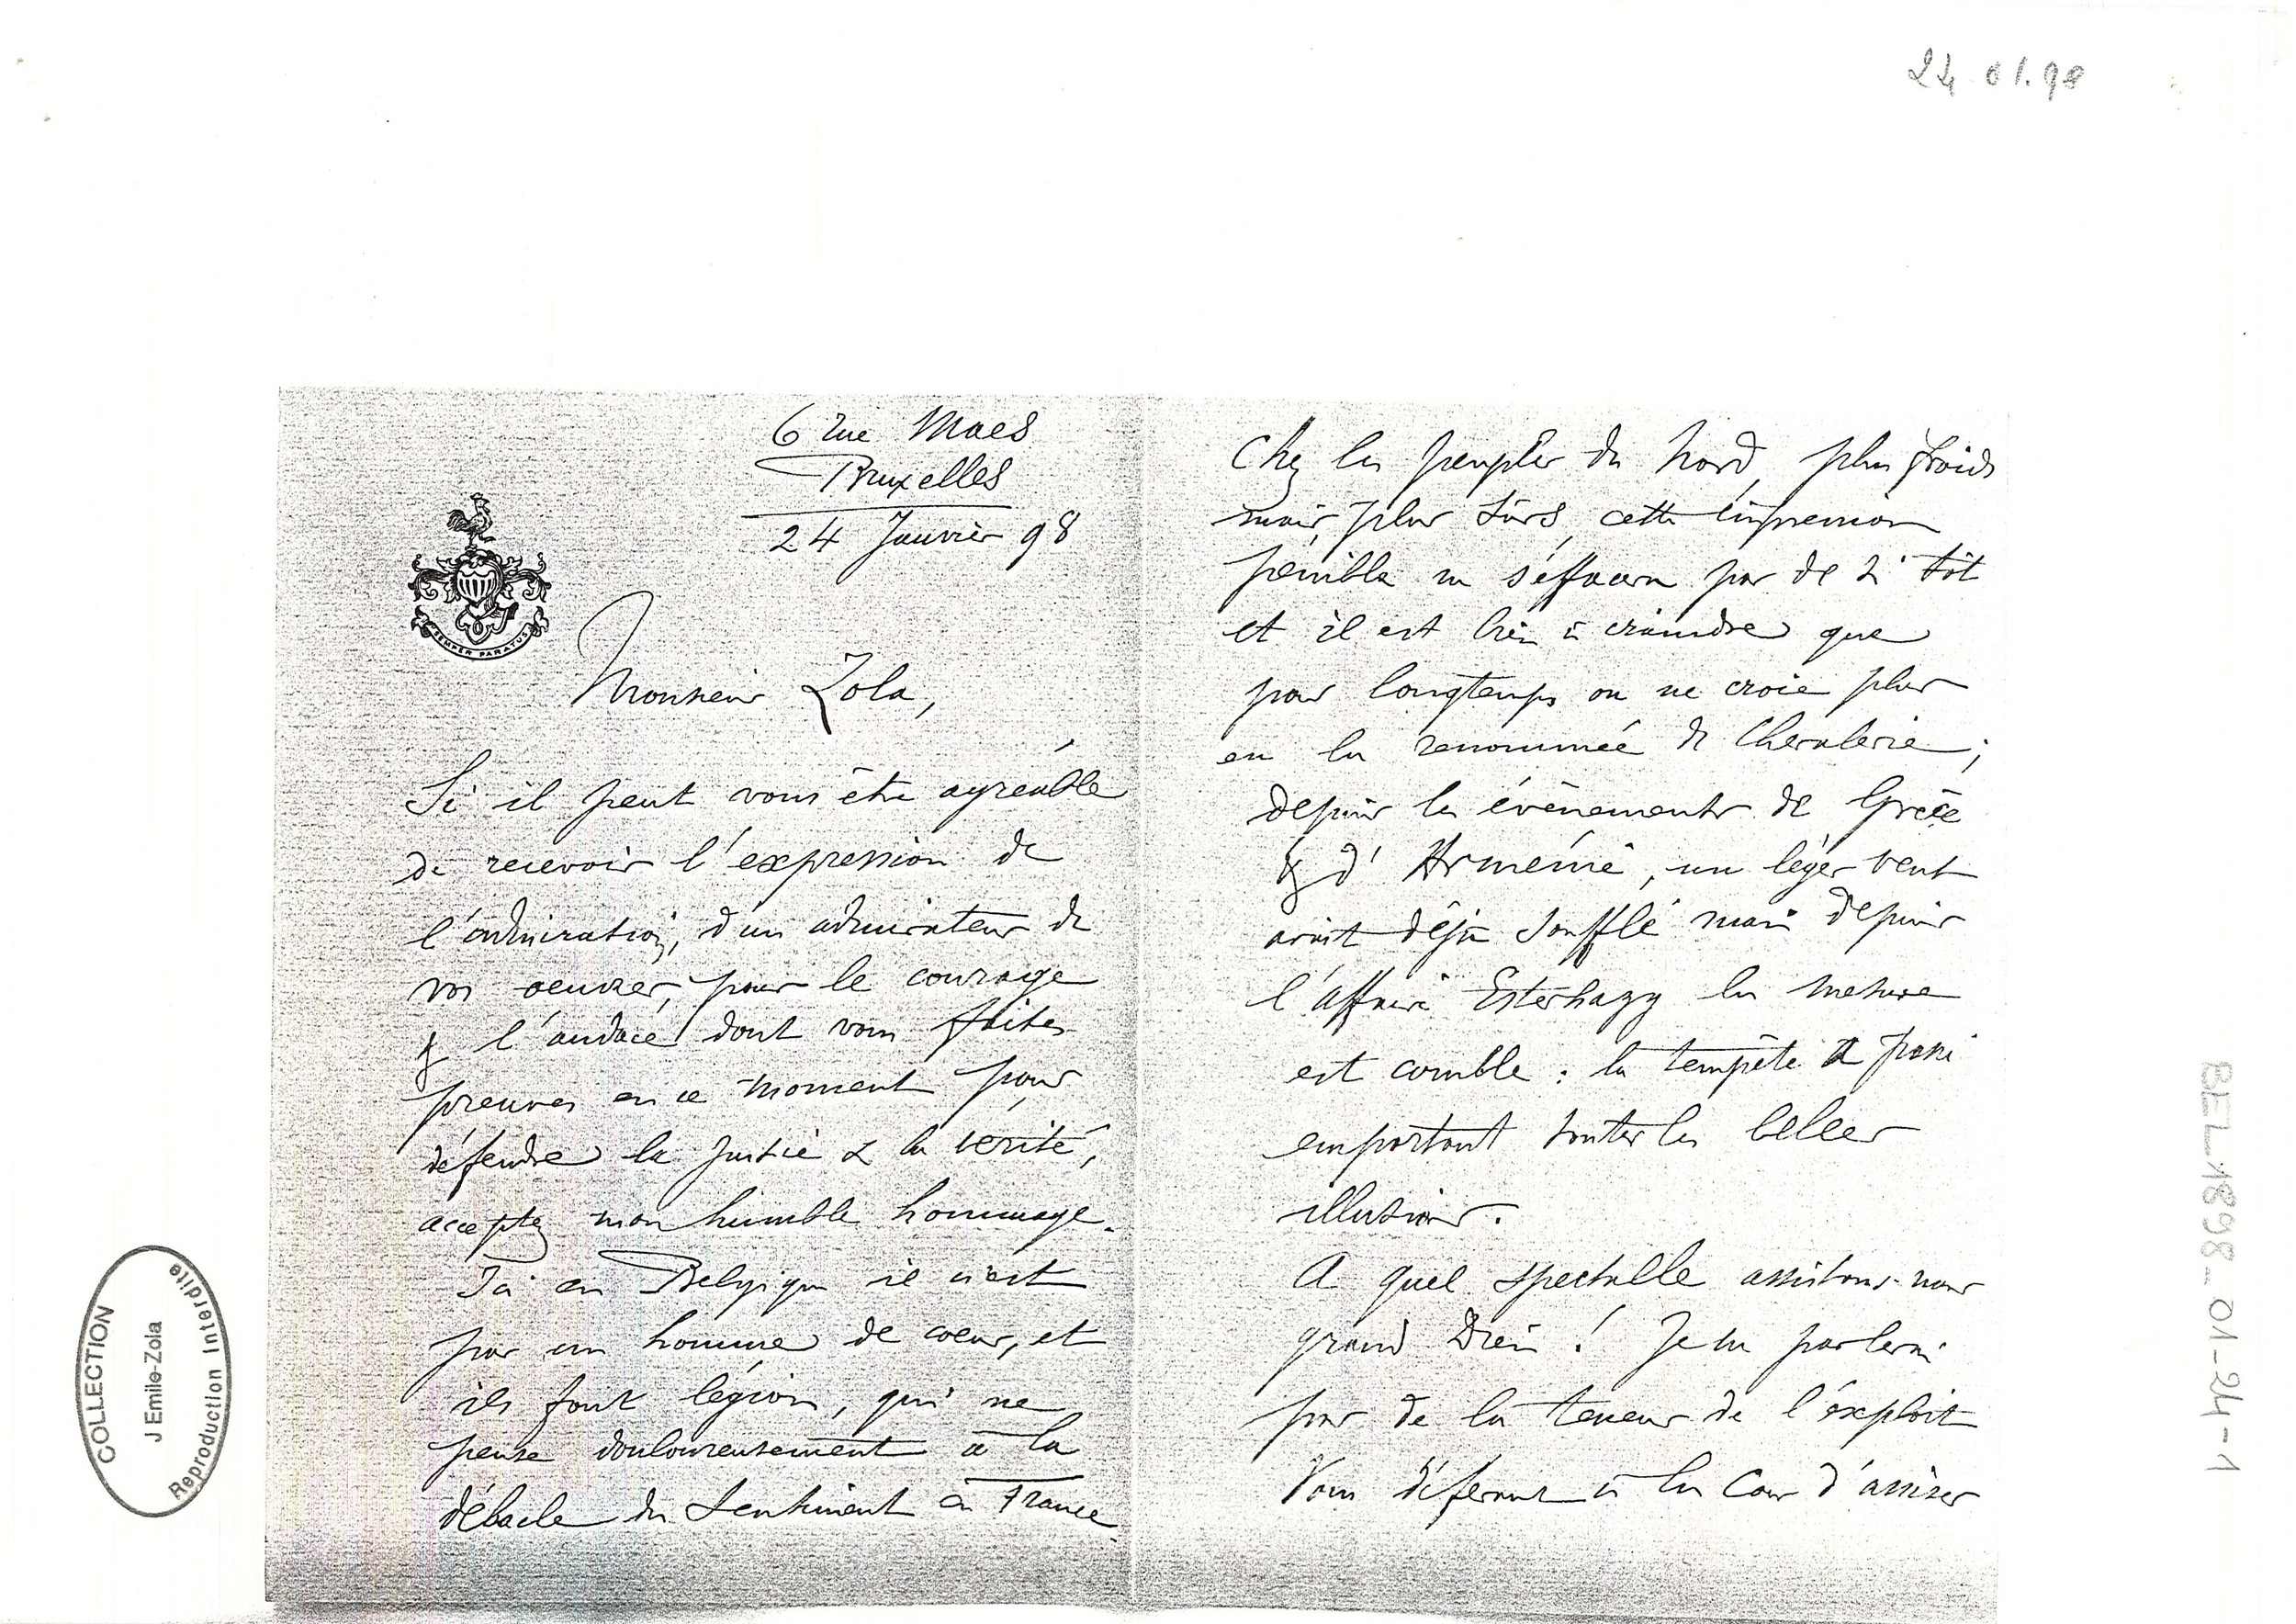 24 01.98
6 rue Maes
Bruxelles
24 Janvier 98
SEMPER PARATUS
Monsieur Zola,
Si il peut vous être agréable
de recevoir l'expression de
l'admiration, d'un admirateur de
vos oeuvres, pour le courage
& l'audace dont vous faites
preuves en ce moment pour
défendre la Justice & la vérité,
acceptez mon humble hommage.
Ici en Belgique il n'est
pas un homme de coeur, et
ils sont légion, qui ne
pense douloureusement à la
débacle du Sentiment en France.
Chez les peuples du Nord, plus froids
mais, plus sûrs, cette impression
pénible ne s'effacera pas de si tôt
et il est bien à craindre que
pour longtemps on ne croie plus
en la renommée de Chevalerie;
depuis les événements de Grèce
& d'Arménie, un léger vent
avait déjà soufflé mais depuis
l'affaire Esterhazy la mesure
est comble : la tempête a passé
emportant toutes les belles
illusions.
A quel spectacle assistons-nous
grand Dieu ! Je ne parlerai
pas de la teneur de l'exploit
Vous déferant à la Cour d'assises
COLLECTION
J Emile-Zola
Reproduction Interdite
BEL_1898_01-24-1